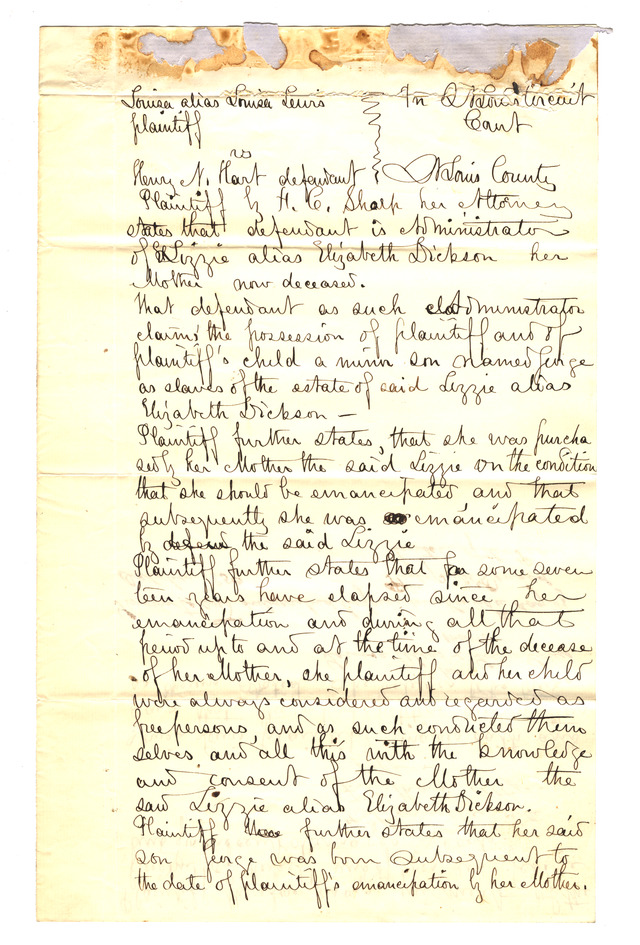 Louisa alias Louisa Lewis In St Louis Circuit
plaintiff Court
vs
Henry N. Hart defendant St Louis County
Plaintiff by H. C. Sharp her Attorney
states that defendant is Administrator
of Lizzie alias Elizabeth Dickson her
Mother now deceased.
That defendant as such Administrator
claims the possession of plaintiff and of
plaintiff's child a minor son named George
as slaves of the estate of said Lizzie alias
Elizabeth Dickson —
Plaintiff further states, that she was purcha
sed by her Mother the said Lizzie on the condition
that she should be emancipated and that
subsequently she was emancipated
by the said Lizzie
Plaintiff further states that some seven
teen years have elapsed since her
emancipation and during all that
period up to and at the time of the decease
of her Mother, she plaintiff and her child
were always considered and regarded as
free persons, and as such conducted them
selves and all this with the knowledge
and consent of the Mother the
said Lizzie alias Elizabeth Dickson.
Plaintiff further states that her said
son George was born subsequent to
the date of plaintiff's emancipation by her Mother.